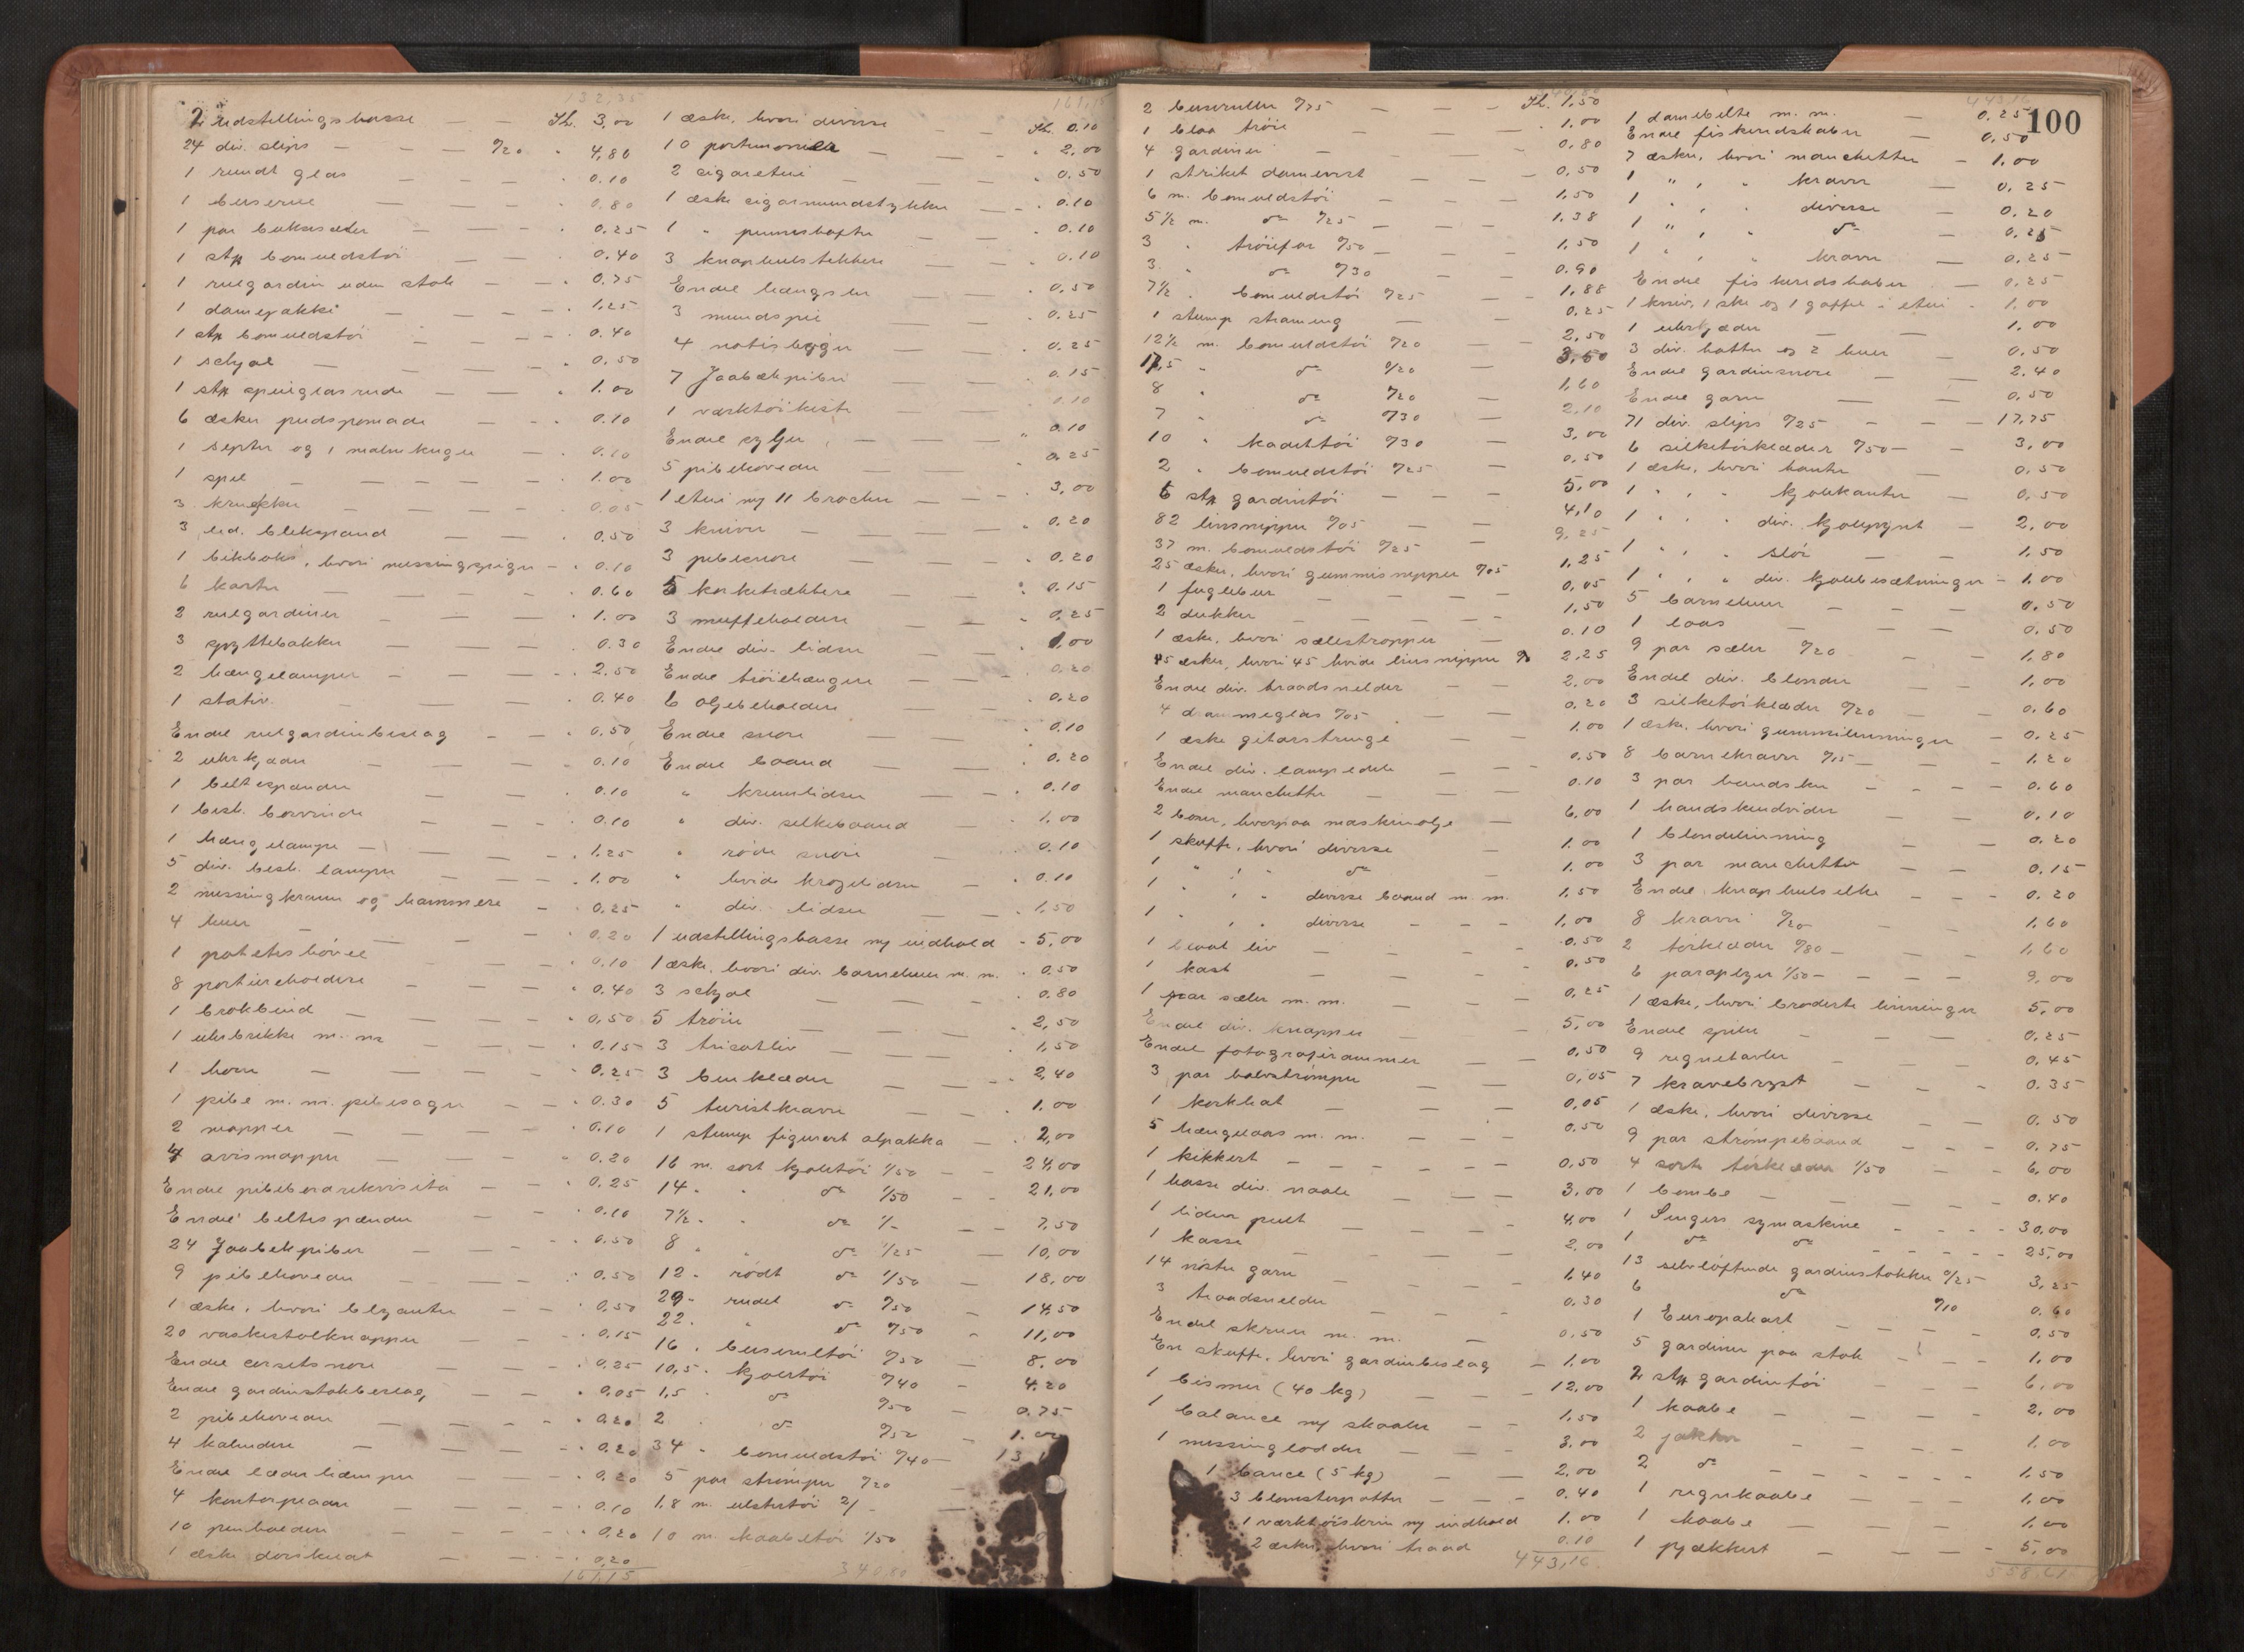 132,35
2 udstillingskasse — — Th. 3,00
24 div. slips — — 0/20 " 4,80
1 rundt glas — — — — " 0.10
1 buserul — — — " 0.80
1 par buksesæler — — — " 0.25
1 stk bomuldstøi — — " 0.40
1 rulgardin uden stok — — " 0.75
1 damejakke — — — — 1.25
1 stk bomuldstøi — — — " 0.40
1 schjal — — — — 0.50
1 stk speilglasrude — — " 1.00
6 æsker pudspomade — — " 0.10
1 septer og 1 malmkugle — " 0.10
1 spil — — — — — 1.00
3 krukker — — — — 0.05
3 lid. blikspand — — " 0.50
1 blikboks, hvori messingpiger — " 0.10
6 karter — — — — " 0.60
2 rulgardiner — — — " 1.00
3 spyttebakker — — — 0.30
2 hængelamper — — — " 2.50
1 stativ — — — " 0.40
Endel rulgardinbeslag — — " 0.50
2 uhrkjæder — — — — 0.10
1 beltespænder — — — 0.10
1 besk. borvinde — — — " 0.10
1 hængelampe — — — — " 1.25
5 div. besk. lamper — — — " 1.00
2 messingkraner og hammere — " 0.25
4 huer — — — — " 0.20
1 potetesbøvel — — — " 0.10
8 portiereholdere — — — " 0.40
1 brokbind — — — — " 0.50
1 uhrbrikke m. m. — — — " 0.15
1 horn — — — — " 0.25
1 pibe m. m. pibesager — — " 0.30
2 mapper — — — — 0.10
4 avismapper — — — " 0.20
Endel pibebordrekvisita — — " 0.25
Endel beltespænder — — " 0.10
24 Jaabekpiber — — — " 0.50
9 pibehoveder — — — " 0.50
1 æske, hvori blyanter — — " 0.50
20 vaskestolknapper — — " 0.15
Endel corsetsnore — — — " 0.25
Endel gardinstokbeslag, — — " 0.05
2 pibehoveder — — — " 0.20
4 kalendere — — — — " 0.20
Endel læderlæmper — — — " 0.20
4 kontorpeader — — — — 0.10
10 penholdere — — — " 0.20
1 æske dørskilt — — " 0.20
161,15
161,15
1 æske, hvori diverse — — Th. 0.10
10 portmonnæ — — — " 2,00
2 cigaretui — — — " 0.50
1 æske cigarmundstykker — — " 0.10
1 " pennesbøfte — — " 0.10
3 knaphulstekkere — — " 0.10
Endel hængsler — — — " 0.50
3 mundspil — — — " 0.25
4 notisbøger — — — " 0.25
7 Jaabækpiber — — — 0.15
1 værktøikiste — — — 0.10
Endel sylju — — — " 0.10
5 pibehoveder — — — " 0.25
1 etui m/ 11 brocher — — — 3,00
3 kniver — — — — " 0.20
3 pibesnore — — — " 0.20
5 korketrækkere — — " 0.15
3 muffeholdere — — " 0.25
Endel div. lidser — — 1,00
Endel trøiehængere — — 0.20
6 oljebeholdere — — " 0.20
Endel snore — — — " 0.10
Endel baand — — — " 0.20
" krumlidser — — " 0.10
" div. silkebaand — " 1,00
" røde snore — — " 0.10
" hvide kropelidser — " 0.10
" div. lidser — — " 1,50
1 udstillingskasse m/ indhold - 5,00
1 æske, hvori div. barnehuer m. m. " 0.50
3 schjal — — — " 0.80
5 trøier — — — " 2,50
3 tricotliv — — — " 1,50
3 benklæder — — — " 2,40
5 turistkraver — — " 1.00
1 stump figurert alpakka — " 2,00
16 m. sort kjoletøi 1/50 — — 24,00
14 " " do 1/50 — — 21,00
7½ " " do 1/- — — 7,50
8 " " do 1/25 — 10,00
12 " rødt do 1/50 — 18,00
29 " rudet do 0/50 — 14.50
22 " " do 0/50 " 11,00
16 " buserultøi 0/50 — 8.00
10,5 " kjoletøi 0/40 — 4.20
1,5 " do 0/50 — 0.75
2 " do 0/50 — 1.00
34 " bomuldstøi 0/40 — 13
5 par strømper 0/20
1,8 m. ulstertøi 2/- —
10 m. kaabetøi 1/50
340,80
340,80
2 buseruller 0/75 — — Th. 1,50
1 blaa trøie — — — " 1.00
4 gardiner — — — 0.80
1 strikket damevest — — — 0.50
6 m. bomuldstøi — — — 1,50
5½ m. do 0/25 — — 1,38
3 " trøiefor 0/50 — — 1,50
3 " do 0/30 — — 0.90
7½ " bomuldstøi 0/25 — — 1,88
1 stump straming — — 0.25
12½ m. bomuldstøi 0/20 — 2,50
17,5 " do 0/20 — 3,50
8 " do 0/20 — 1,60
7 " do 0/30 — 2,10
10 " kadettøi 0/30 — 3,00
2 " bomuldstøi 0/25 — 0.50
6 stk gardintøi — — — 5,00
82 linsnipper 0/05 — — 4,10
37 m. bomuldstøi 0/25 — 9,25
25 æsker, hvori gummisnipper 0/05 1,25
1 fuglebur — — — — 0,05
2 dukker — — — — 1,50
1 æske, hvori sælestropper — 0.10
45 æsker, hvori 45 hvide linsnipper 2,25
Endel div. traadsneller — — 2.00
4 drammeglas 0/05 — — 0.20
1 æske gitarstrenge — — 1.00
Endel div. lampedele — — 0.50
Endel manchetter — — — 0.10
2 boxer, hvorpaa maskinolje — 6,00
1 skuffe, hvori diverse — 1.00
1 " , " do — 1.00
1 " , " diverse baand m. m. 1,50
1 " , " diverse — — — 1,00
1 blaat liv — — — 0.50
1 kast — — — — 0.50
1 par sæler m. m. — — — 0,25
Endel div. knapper — 5,00
Endel fotografirammer — — 0,50
3 par halvstrømper — — 0,05
1 korkhat — — — 0,05
5 hængelaas m. m. — — — 0.50
1 kikkert — — — — — 0,50
1 kasse div. naale — — — 3.00
1 liden pult — — — 4,00
1 kasse — — — — 2.00
14 nøster garn — — — 1,40
3 traadsneller — — — 0.30
Endel skruer m. m. — 0.50
En skuffe, hvori gardinbeslag — 1,00
1 bismer (40 kg) — — — 12,00
1 balance m/ skaaler — — 1,50
1 messinglodder — — 3.00
1 bance (5 kg) — — 2,00
3 blomsterpotter — — — 0.40
1 værktøiskrin m/ indhold 1.00
2 æsker, hvori traad 0.10
443,16
443,16
1 damebelte m. m. — 0.25
100
Endel fiskeredskaber — 0.50
7 æsker, hvori manchetter — 1,00
1 " , " kraver — 0.25
1 " , " diverse — 0.20
1 " , " do — 0.25
1 " , " kraver — 0.25
Endel fiskeredskaber — 0.25
1 kniv, 1 ske og 1 gaffel i etui — 1,00
1 uhrkjæder — — — 1.00
3 div. hatter og 2 huer — 0.50
Endel gardinsnore — — 2.40
Endel garn — — 0.50
71 div. slips 0/25 — — — 17,75
6 silketørklæder 0/50 — — 3,00
1 æske, hvori kanter — — 0.50
1 " , " kjolekanter — 0.50
1 " , " div. kjolepynt — 2,00
1 " , " slør — — 1,50
1 " , " div. kjolebesætninger — 1.00
5 barnehuer — — — 0.50
1 laas — — — — 0.50
9 par sæler 0/20 — — 1.80
Endel div. blonder — — 1.00
3 silketørklæder 0/20 — — 0.60
1 æske, hvori gummilinninger — 0.25
8 barnekraver 0/15 — — — 1.20
3 par handsker — — — — 0.60
1 handskeudvider — — — 0.10
1 blondelinning — — — 0.20
3 par manchetter — — — 0.15
Endel knaphulsilke — — 0.20
8 kraver 0/20 — — — 1,60
2 tørklæder 0/80 — — — 1,60
6 paraplyer 1/50 — — — — 9,00
1 æske, hvori broderte linninger 5,00
Endel spiler — — — 0.25
9 regnetavler — — — 0.45
7 kravebryst — — — 0.35
1 æske, hvori diverse — — 0.50
9 par strømpebaand — — — 0.75
4 sorte tørklæder 1/50 — — 6,00
1 bombe — — — — 0.40
1 Singers symaskine — — — — 30,00
1 do do — — — — 25,00
13 selvløftende gardinstokker 0/25 3,25
6 do 0/10 0.60
1 Europakart — — — — 0.50
5 gardiner paa stok — — 1,00
2 stk gardintøi — — — 6,00
1 kaabe — — — — 2,00
2 jakker — — — — 1.00
2 do — — — — — 1,50
1 regnkaabe — — — 1.00
1 kaabe — — — — 1.00
1 pjækkert — — — — 5,00
558,61